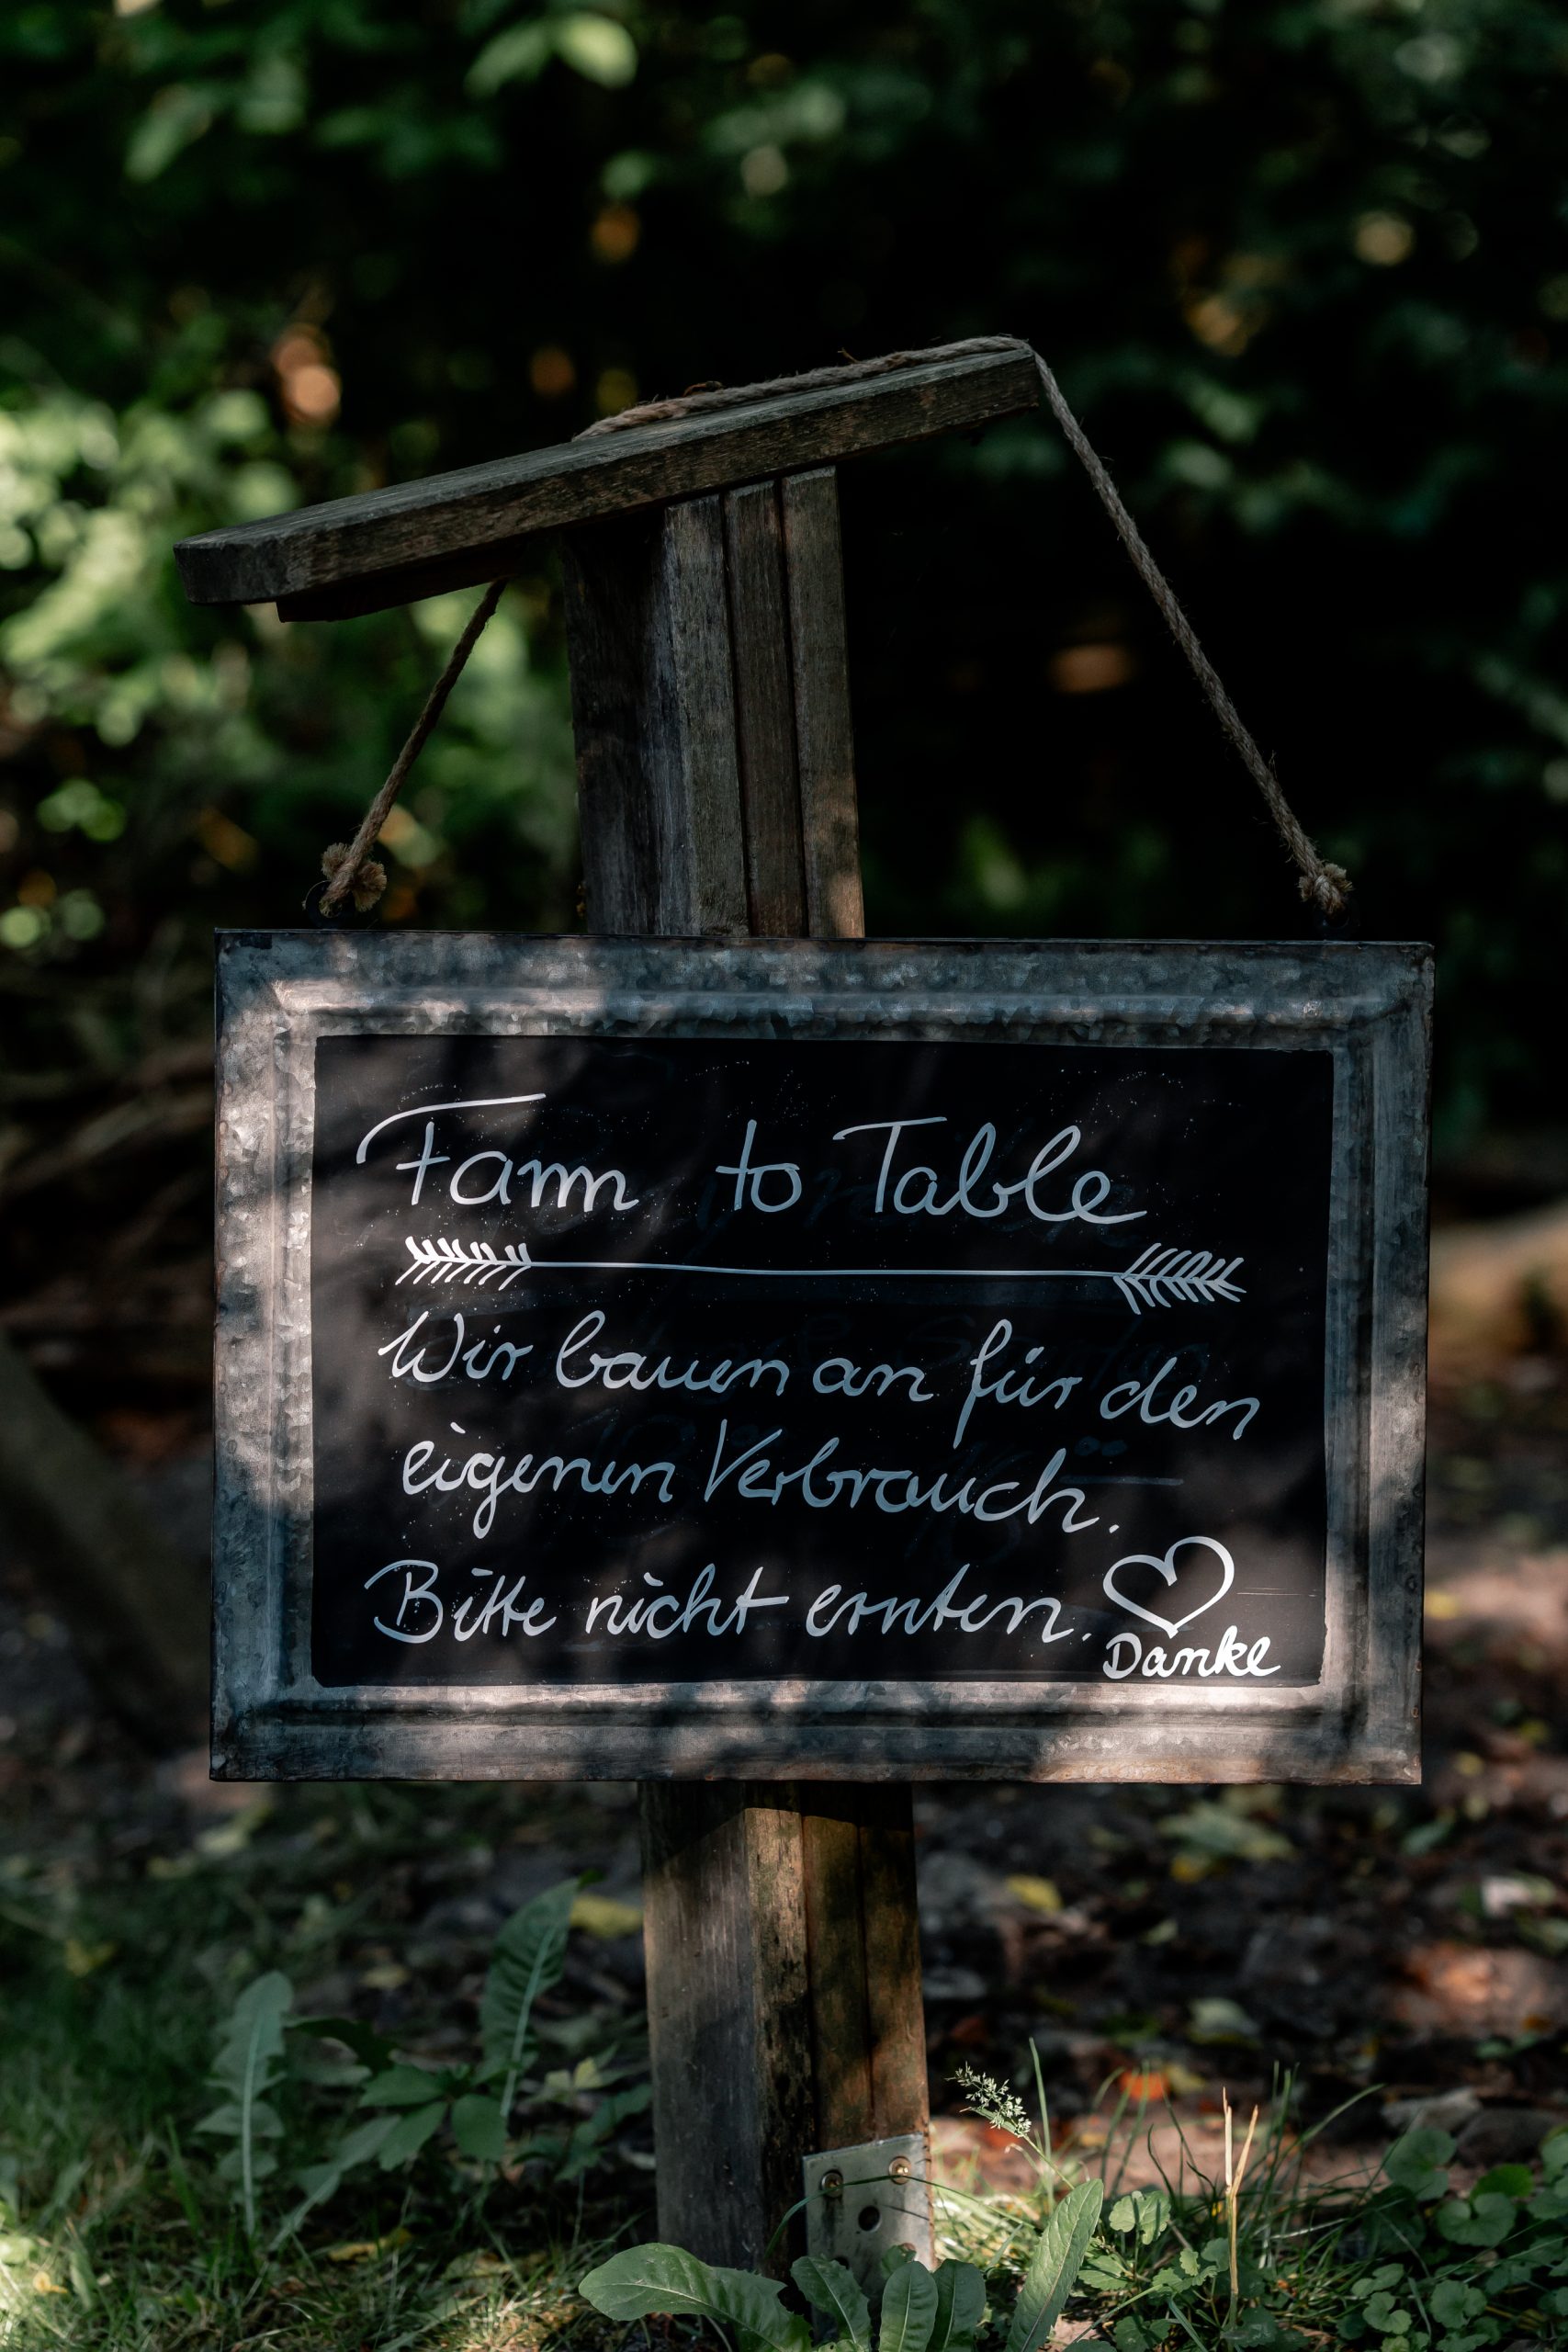 Farm to Table
Wir bauen an für den
eigenen Verbrauch.
Bitte nicht ernten.
Danke